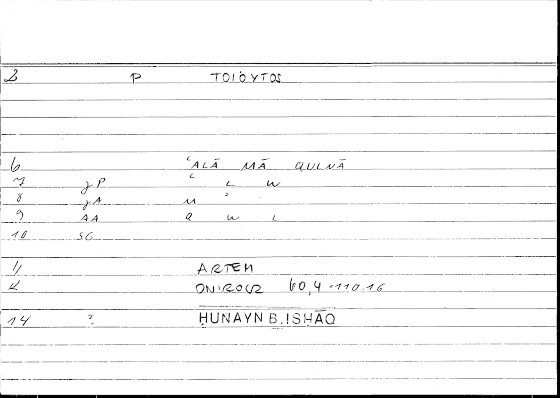 2 P ΤΟΙΟΥΤΟS
6 ʿALĀ MĀ QULNĀ
7 gP ʿ L W
8 gA M ʾ
9 AA Q W L
10 SG
11 ARTEM
12 ONIROCR 60,4 - 110.16
14 ? ḤUNAYN B. ISḤĀQ